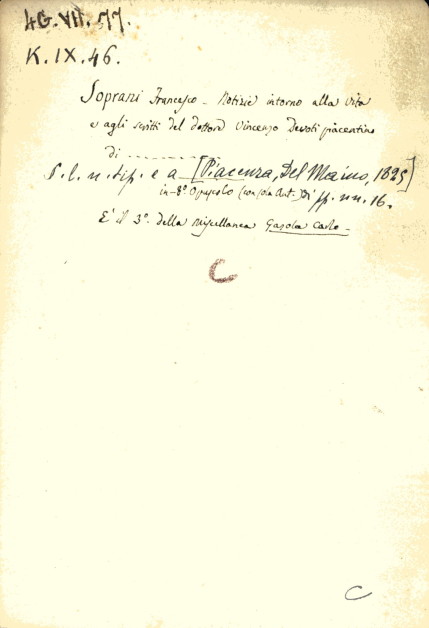 4G.VII.77.
K.IX.46.
Soprani Francesco - Notizie intorno alla vita
e agli scritti del dottore Vincenzo Devoti piacentino
di ..........
S. l. n. tip. e a - [Piacenza, Del Maino, 1825]
in-8º Opuscolo (con sola Ant.) Di pp. nn. 16.
E' il 3º. della Miscellanea Gazola Carlo -
C
C